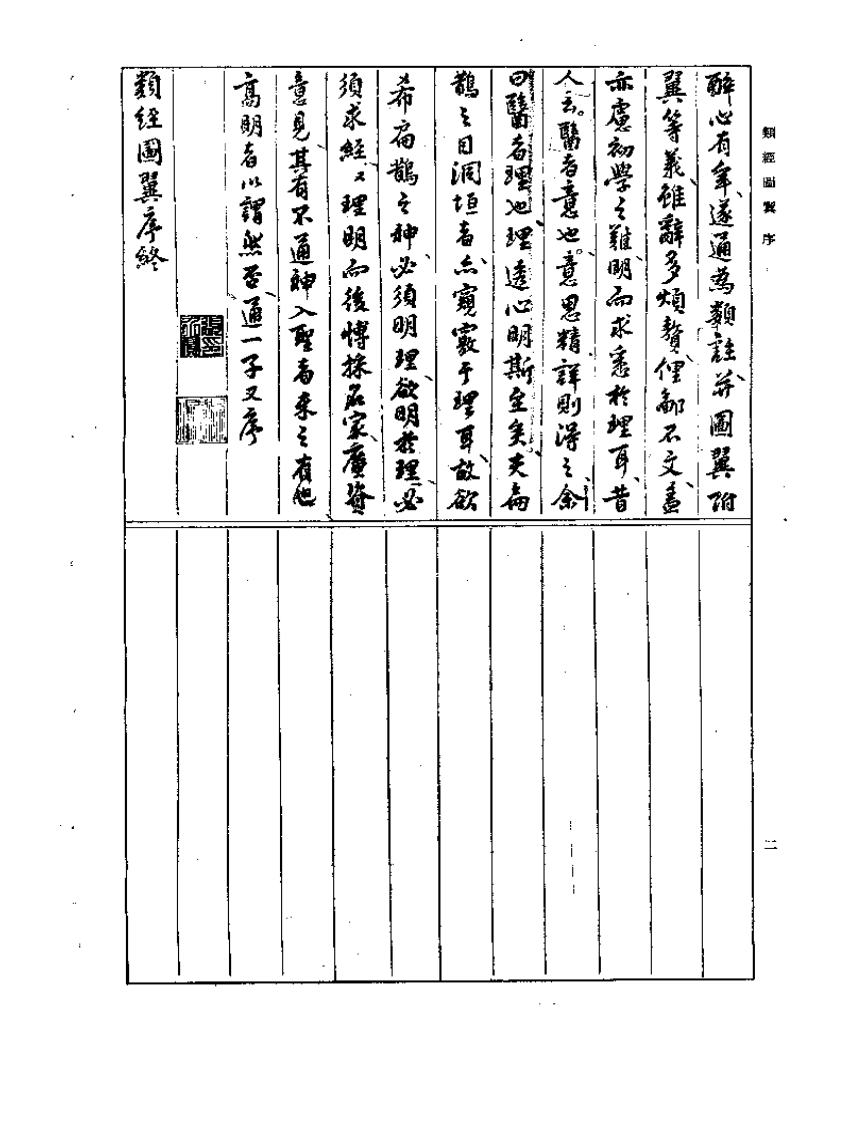 類經圖翼 序
二
醉心有年、遂通為類註、并圖翼附
翼等義、雖辭多煩贅、俚鄙不文、蓋
亦慮初學之難明、而求悉於理耳、昔
人云。醫者意也。意思精詳則得之、余
曰醫者理也、理透心明斯至矣。夫扁
鵲之目洞垣者、亦窺竅于理耳、故欲
希扁鵲之神、必須明理、欲明於理、必
須求經、經理明而後博採名家、廣資
意見、其有不通神入聖者未之有也
高明者以謂然否、通一子又序
類經圖翼序終